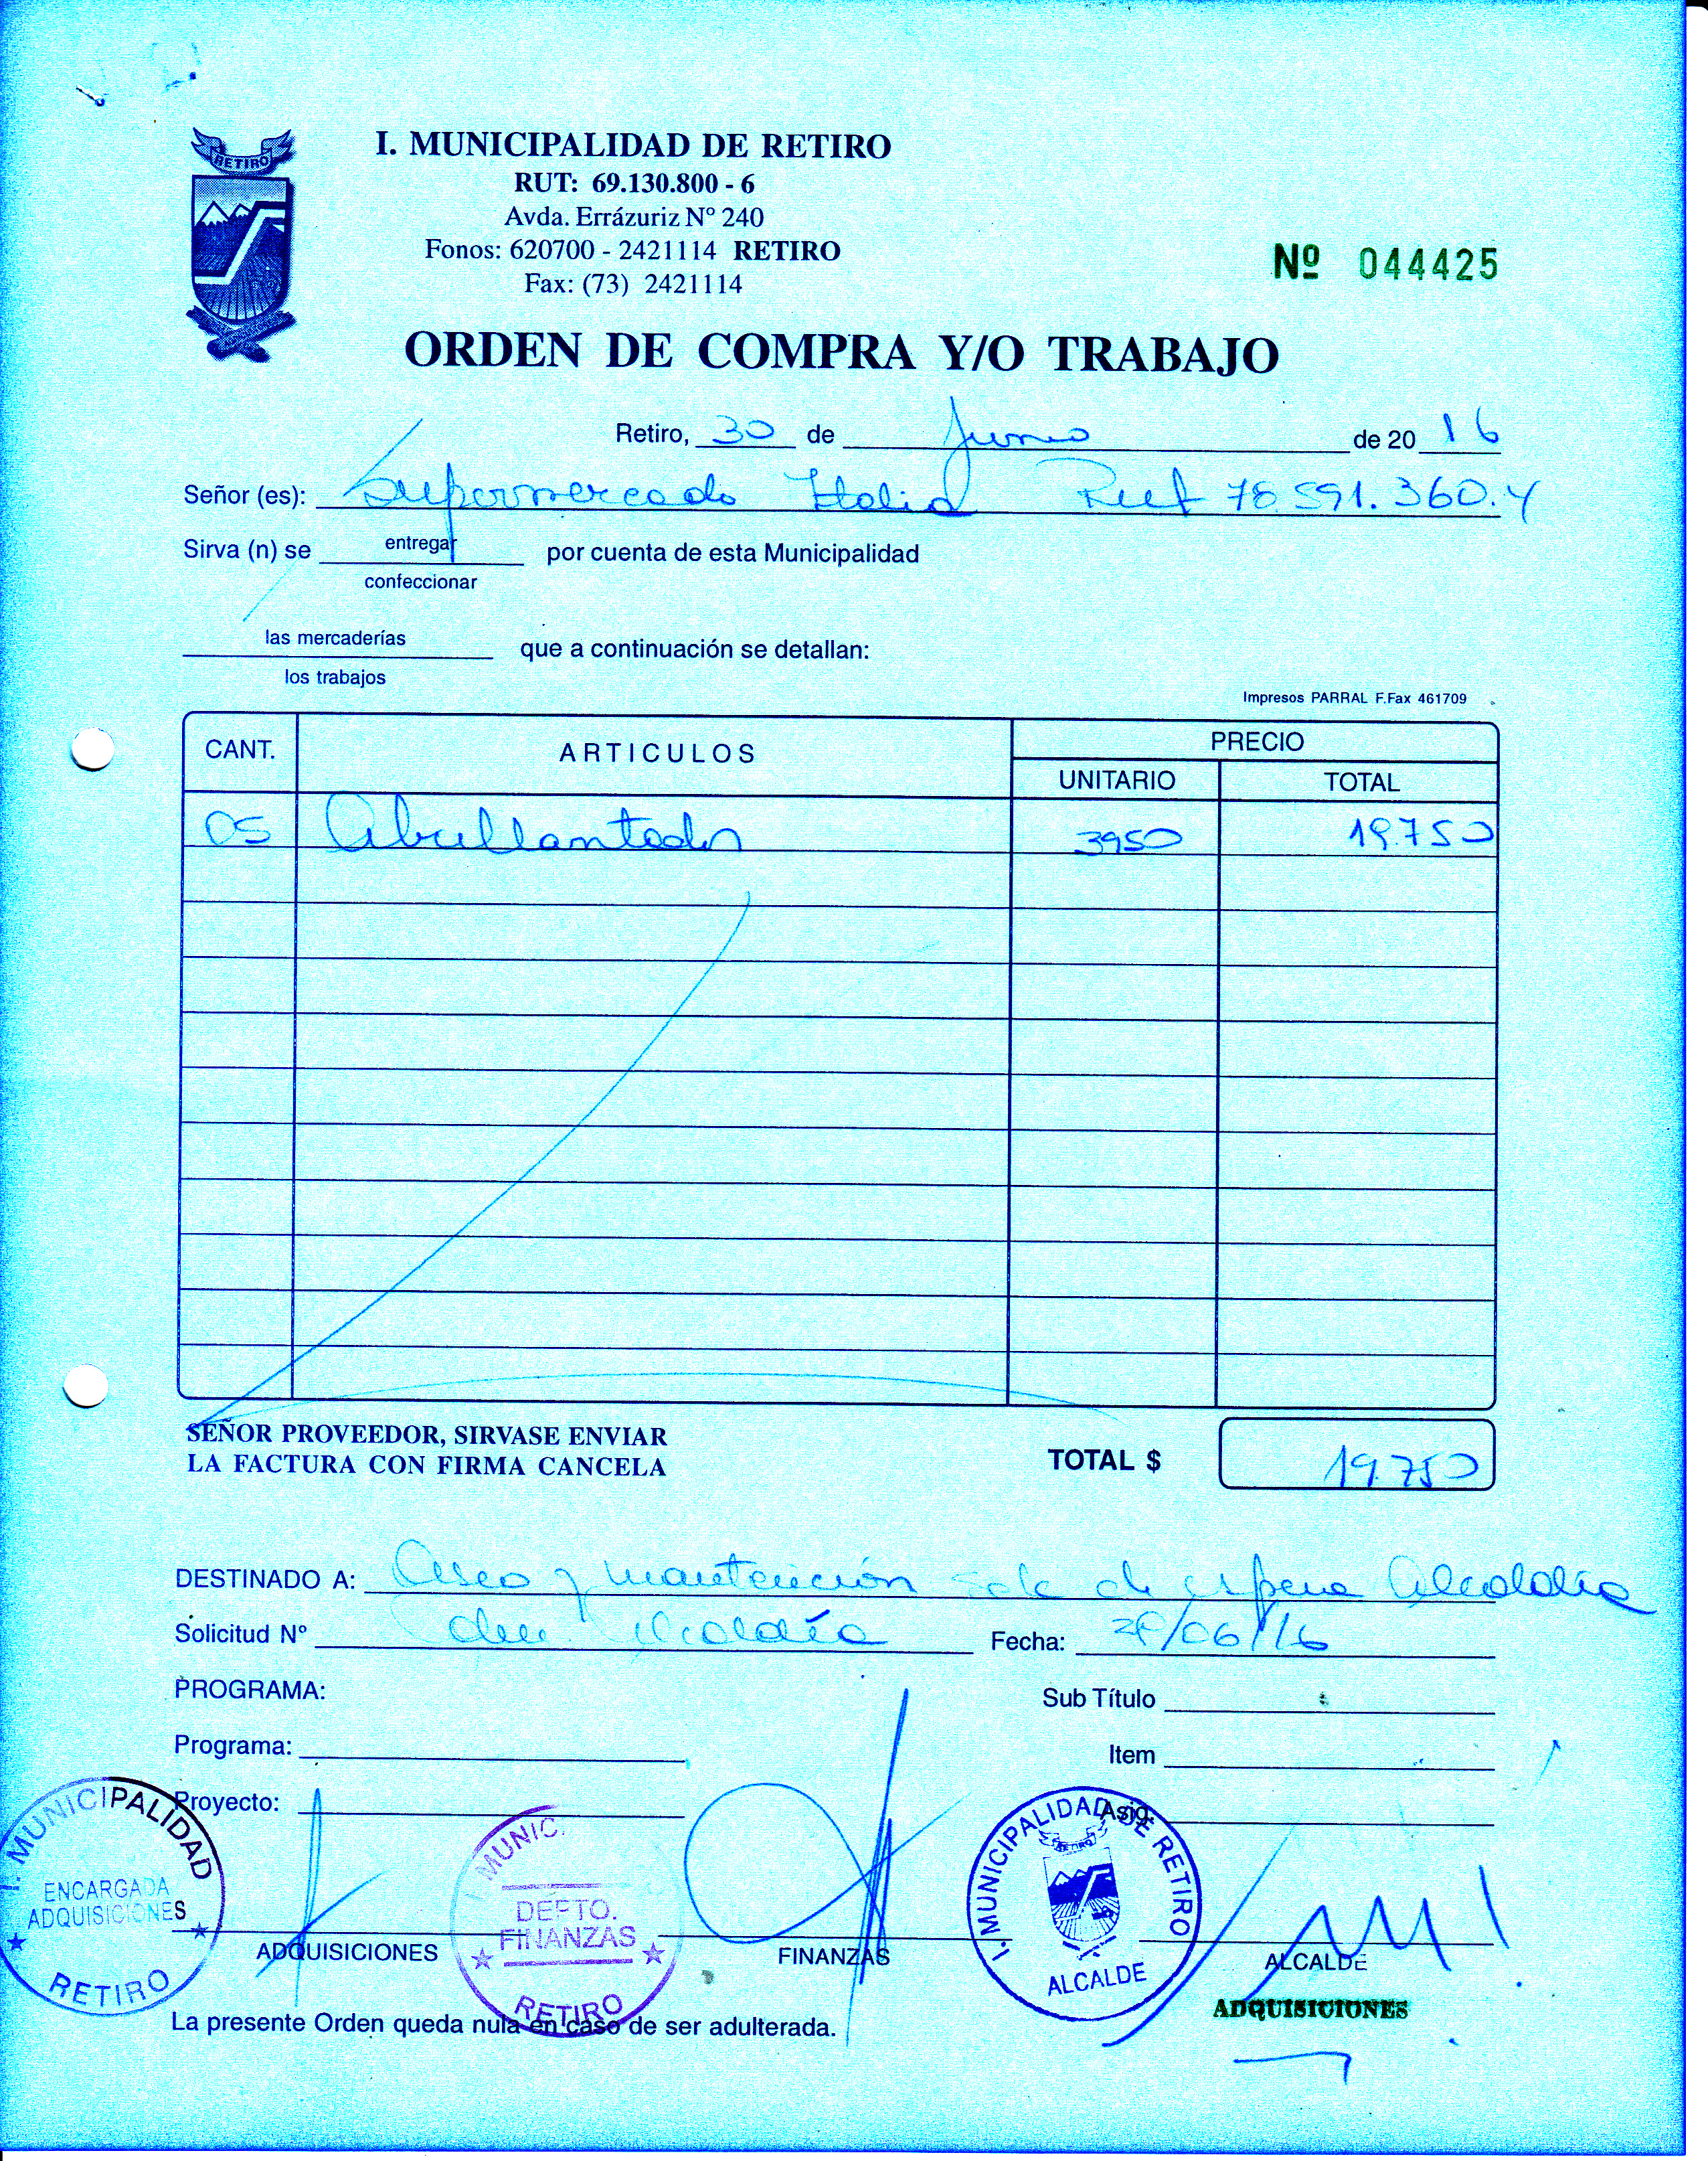 RETIRO
I. MUNICIPALIDAD DE RETIRO
RUT: 69.130.800 - 6
Avda. Errázuriz Nº 240
Fonos: 620700 - 2421114 RETIRO
Fax: (73) 2421114
Nº 044425
ORDEN DE COMPRA Y/O TRABAJO
Retiro, 30 de Junio de 20 16
Señor (es): Supermercado Italia Rut 78.591.360.4
Sirva (n) se entregar por cuenta de esta Municipalidad
confeccionar
las mercaderías que a continuación se detallan:
los trabajos
Impresos PARRAL F.Fax 461709
CANT. ARTICULOS PRECIO
UNITARIO TOTAL
05 Abrillantador 3950 19.750
SEÑOR PROVEEDOR, SIRVASE ENVIAR
LA FACTURA CON FIRMA CANCELA
TOTAL $ 19.750
DESTINADO A: Aseo y mantención sala de espera Alcaldía
Solicitud Nº Alcaldía Fecha: /06/16
PROGRAMA:
Sub Título
Programa:
Item
Proyecto:
Asig.
I. MUNICIPALIDAD
ENCARGADA
ADQUISICIONES
RETIRO
I. MUNIC.
DEPTO.
FINANZAS
RETIRO
I. MUNICIPALIDAD DE RETIRO
RETIRO
ALCALDE
ADQUISICIONES FINANZAS ALCALDE
ADQUISICIONES
La presente Orden queda nula en caso de ser adulterada.